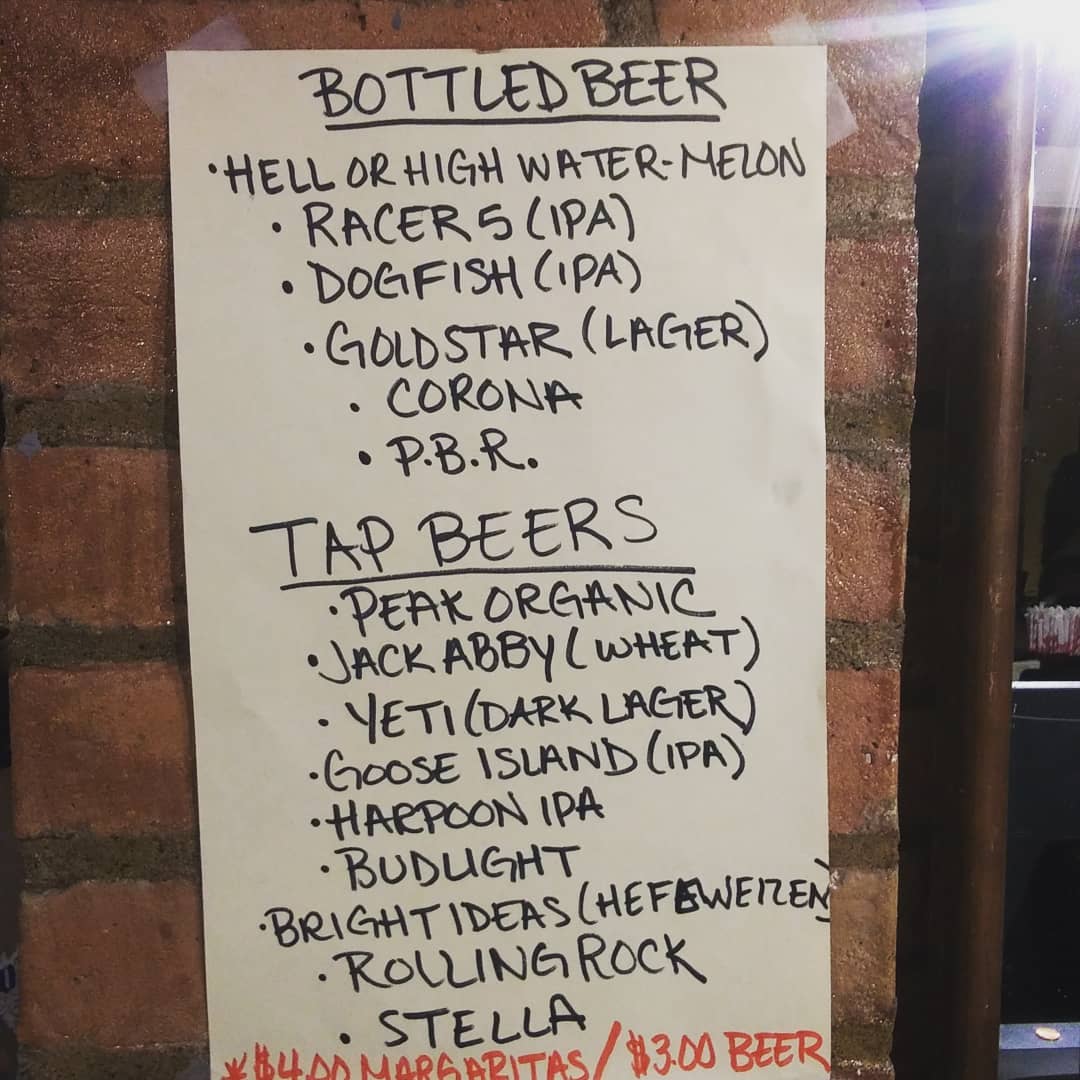 BOTTLED BEER
• HELL OR HIGH WATER-MELON
• RACER 5 (IPA)
• DOGFISH (IPA)
• GOLDSTAR (LAGER)
• CORONA
• P.B.R.
TAP BEERS
• PEAK ORGANIC
• JACK ABBY (WHEAT)
• YETI (DARK LAGER)
• GOOSE ISLAND (IPA)
• HARPOON IPA
• BUDLIGHT
• BRIGHT IDEAS (HEFEWEIZEN)
• ROLLING ROCK
• STELLA
* $4.00 MARGARITAS / $3.00 BEER